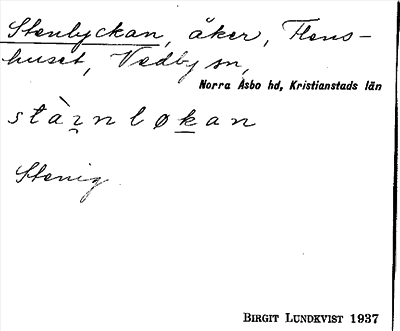 Stenlyckan, åker, Flens-
huset, Vedby sn,
Norra Åsbo hd, Kristianstads län
Stenig
BIRGIT LUNDKVIST 1937